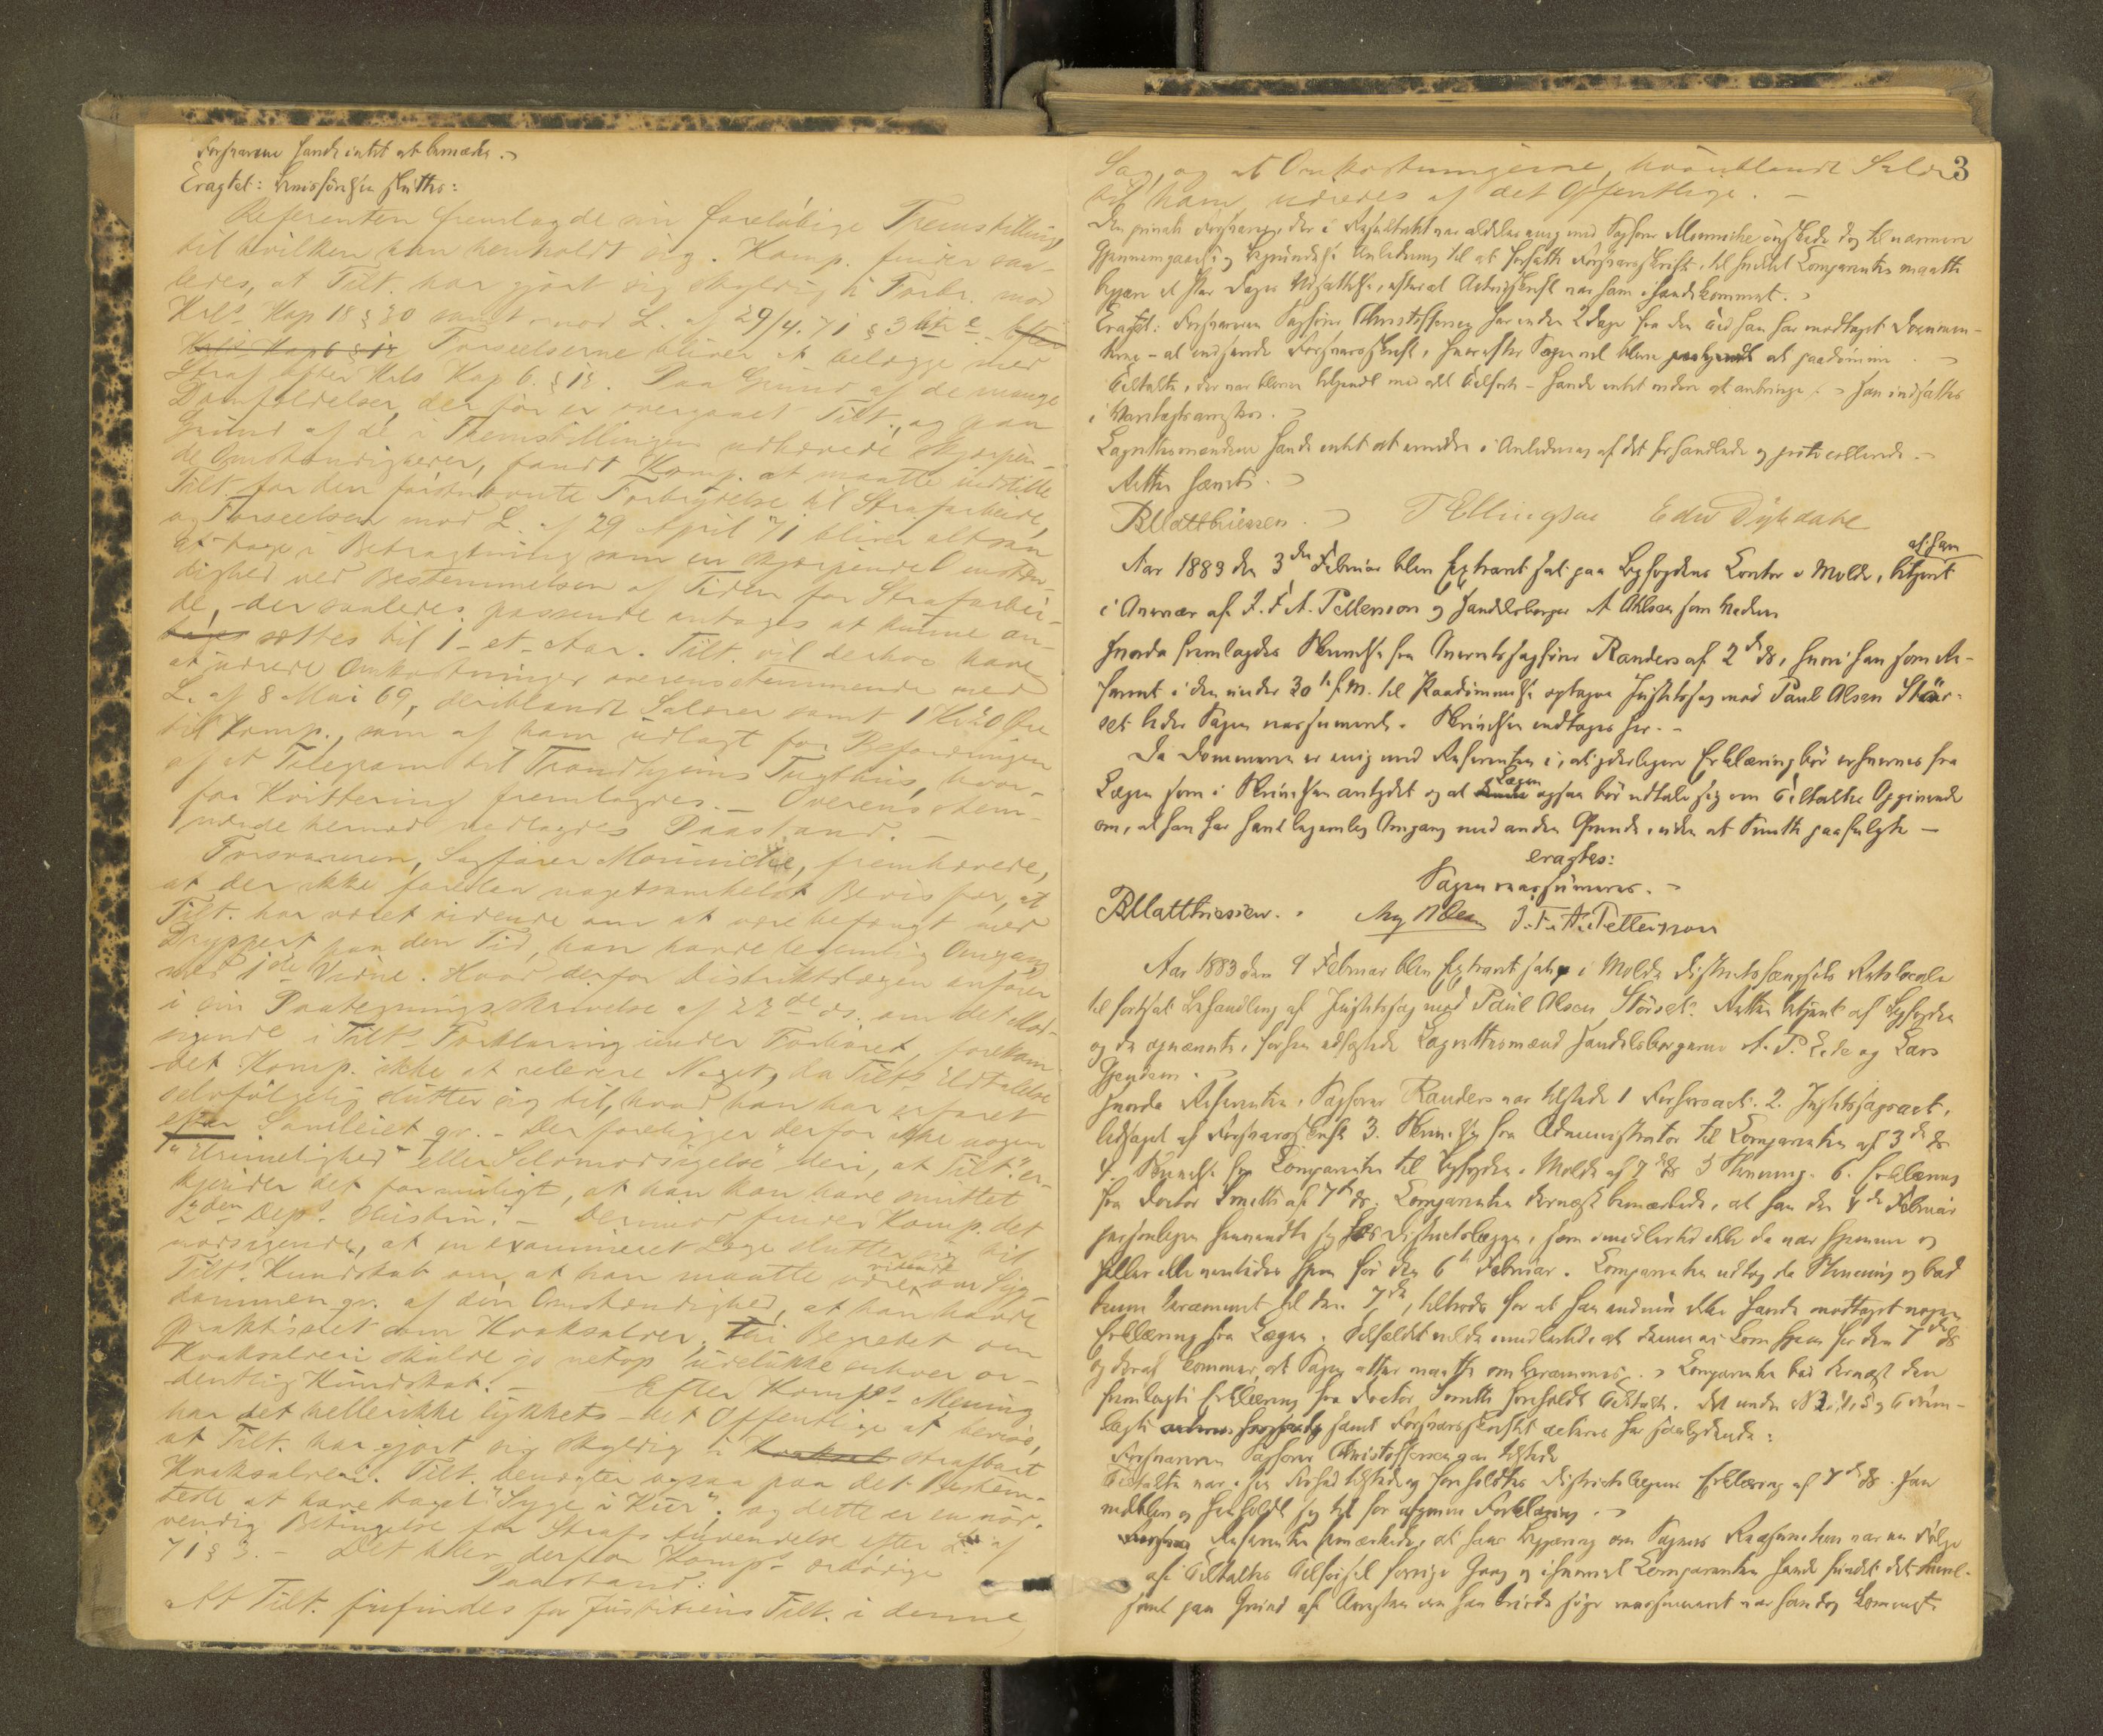 Forsvareren havde intet at bemærke.
Eragtet: Bevisførselen sluttes:
Referenten fremlagde sin foreløbige Fremstilling
til hvilken han henholdt sig. Komp. finder saa-
ledes, at Tilt. har gjort sig skyldig i Forbr. mod
Krls Kap 18 § 30 samt mod L. af 29/4. 71 § 3 litr c. efter
Krls Kap 6 § 12 Forseelserne bliver at belægge med
Straf efter Krls Kap 6. § 12. Paa Grund af de mange
Domfældelser, der før er overgaaet Tilt., og paa
Grund af de i Fremstillingen udhævede skjærpen-
de Omstændigheder, fandt Komp. at maatte indstille
Tilt. for den førstnævnte Forbrydelse til Strafarbeide,
og Forseelsen mod L. af 29 April 71 bliver altsaa
at tage i Betragtning som en skjærpende Omstæn-
dighed ved Bestemmelsen af Tiden for Strafarbei-
de, der saaledes passende antages at kunne an-
sættes til 1 - et - Aar. Tilt. vil derhos have
at udrede Omkostninger overensstemmende med
L. af 8 Mai 69, deriblandt Salærer samt 1 Kr 20 Øre
til Komp., som af ham udlagt for Befordringen
af et Telegram til Trondhjems Tugthus, hvor-
for Kvittering fremlagdes. – Overensstem-
mende hermed nedlagdes Paastand. –
Forsvareren, Sagfører Münniche, fremhævede,
at der ikke forelaa nogetsomhelst Bevis for, at
Tilt. har været vidende om at være befængt med
Dryppert paa den Tid, han havde legemlig Omgang
med 1de Vidne. Hvad derfor Distriktslægen anfører
i sin Paategningsskrivelse af 22de ds. om det Mod-
sigende i Tilts Forklaring under Forhøret, forekom
det Komp. ikke at relevere Noget, da Tilts Udtalelse
selvfølgelig slutter sig til, hvad han har erfaret
efter Samleiet qv. – Der foreligger derfor ikke nogen
"Urimelighed" eller Selvmodsigelse" deri, at Tilt. "er-
kjender det for muligt, at han kan have smittet
2den Dep.s Hustru." – Derimod finder Komp. det
modsigende, at en examineret Læge slutter sig til
Tilts Kundskab om, at han maatte være vidende om Syg-
dommen qv. af den Omstændighed, at han havde
praktiseret som Kvaksalver, thi Begrebet om
Kvaksalveri skulde jo netop udelukke enhver or-
dentlig Kundskab. – Efter Komps Mening
har det hellerikke lykkets det Offentlige at bevise,
at Tilt. har gjort sig skyldig i strafbart
Kvaksalveri. Tilt. benegter ogsaa paa det Bestem-
teste at have taget "Syge i Kur", og dette er en nød-
vendig Betingelse for Strafs Anvendelse efter L. af
71 § 3. – Det blev derfor Komps ærbødige
Paastand:
At Tilt. frifindes for Justitiens Tilt. i denne
3
Sag, og at Omkostningerne, hvoriblandt Salær
til ham, udredes af det Offentlige. –
Den private Forsvarer, der i Resultatet var aldeles enig med Sagfører Münniche ønskede dog til nærmere
Gjennemgaaelse og Begrundelse Anledning til at forfatte Forsvarsskrift, til hvilket Comparenten maatte
begjære et Par Dages Udsættelse, efterat Actorskrift var ham ihændekommet.
Eragtet: Forsvareren Sagfører Christoffersen har inden 2 Dage fra den Tid han har modtaget Documen-
terne – at indsende Forsvarsskrift, hvorefter Sagen vil blive at paadømme.
Tiltalte, der var bleven bekjendt med alt Tilført – havde intet videre at anbringe. – Han indsattes
i Varetægtsarrest.
Lagrettesmændene havde intet at erindre i Anledning af det forhandlede og protocollerede. –
Retten hævet.
B Matthiessen. T Ellingsen Edw Dyhdahl
Aar 1883 den 3de Februar blev Extraret sat paa Byfogdens Contor i Molde, betjent af ham
i Overvær af J. F. A. Pettersson og Handelsborger A Ohlsen som Vidner
Hvorda fremlagdes Skrivelse fra Overretssagfører Randers af 2de ds, hvori han som Re-
ferent i den under 30te f. M. til Paadømmelse optagne Justitssag mod Paul Olsen Stör-
set beder Sagen reassumeret. Skrivelsen indtages her. –
Da Dommeren er enig med Referenten i, at yderligere Erklæring bør erhverves fra
Lægen som i Skrivelsen antydet og at Lægen ogsaa bør udtale sig om Tiltaltes Opgivende
om, at han har havt legemlig Omgang med andre Qvinder, uden at Smitte paafulgte –
eragtes:
Sagen reassumeres. –
B Matthiessen. J. F. A. Pettersson
Aar 1883 den 9 Februar blev Extraret sat i Molde Distriktsfængsels Retslocale
til fortsat Behandling af Justitssag mod Paul Olsen Störset. Retten betjent af Byfogden
og de opnævnte, forhen edfæstede Lagrettesmænd Handelsborgerne A. P. Eide og Lars
Gjendem.
Hvorda Referenten, Sagfører Randers var tilstede 1 Forhørsact. 2. Justitssagsact,
ledsaget af Forsvarsskrift 3. Skrivelse fra Administrator til Comparenten af 3de ds
4. Skrivelse fra Comparenten til Byfogden i Molde af 7de ds 5 Stevning. 6. Erklæring
fra Doctor Smith af 7de ds. Comparenten dernæst bemærkede, at han den 4de Februar
personligen henvendte sig hos Districtslægen, som imidlertid ikke da var hjemme og
heller ikke ventedes hjem før den 6te Februar. Comparenten udtog da Stevning og bad
denne berammet til den 7de, tiltrods for at han endnu ikke havde modtaget nogen
Erklæring fra Lægen. Tilfældet vilde imidlertid, at denne ei kom hjem før den 7de ds
og deraf kommer, at Sagen atter maatte omberammes. – Comparenten bad dernæst den
fremlagte Erklæring fra Doctor Smith foreholdt Tiltalte. Det under No 3, 4, 5 og 6 frem-
lagte samt Forsvarsskriftet acteres her saalydende:
Forsvareren Sagfører Christoffersen var tilstede
Tiltalte var i fri Forhold tilstede og foreholdtes Districtslægens Erklæring af 7de ds. Han
vedblev og henholdt sig til sin afgivne Forklaring.
Referenten bemærkede, at hans Begjæring om Sagens Reassumtion var en Følge
af Tiltaltes Tilførsel forrige Gang og ihvorvel Comparenten havde fundet det tvivl-
somt paa Grund af Arresten om han burde søge reassumeret var han dog kommet